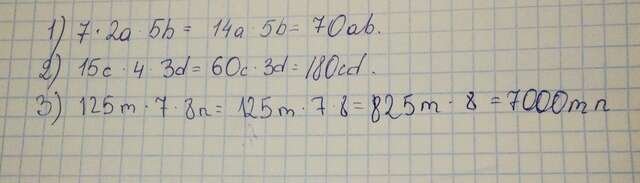 1) 7 · 2a · 5b = 14a · 5b = 70ab.
2) 15c · 4 · 3d = 60c · 3d = 180cd.
3) 125m · 7 · 8n = 125m · 7 · 8 = 825m · 8 = 7000mn